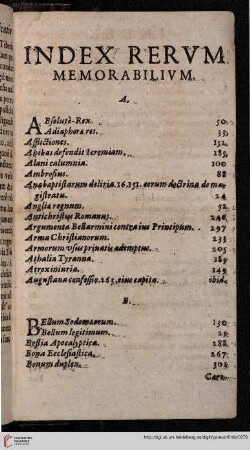 INDEX RERVM
MEMORABILIVM.
A.
ABsolutè-Rex. 50.
Adiaphoræ res. 35.
Afflictiones. 152.
Ahibas defendit Ieremiam. 185.
Alani calumnia. 100
Ambrosius. 88
Anabaptistarum deliria. 16.151. eorum doctrina de ma-
gistratu. 24
Anglia regnum. 52
Antichristus Romanus. 246
Argumenta Bellarmini contra ius Principum. 297
Arma Christianorum. 233
Armorum vsus priuatis ademptus. 205
Athalia Tyranna. 189
Atroxiniuria. 149
Augustana confessio. 263. eius capita. ibid.
B.
BEllum Sodomæorum. 130
Bellum legitimum. 29
Bestia Apocalyptica. 288
Bona Ecclesiastica. 267
Bonum duplex. 302